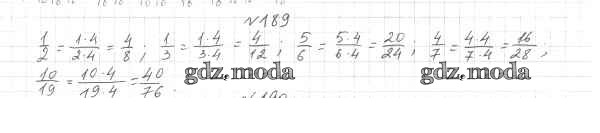 №189
1/2 = 1·4/2·4 = 4/8; 1/3 = 1·4/3·4 = 4/12; 5/6 = 5·4/6·4 = 20/24; 4/7 = 4·4/7·4 = 16/28;
10/19 = 10·4/19·4 = 40/76.
gdz.moda gdz.moda